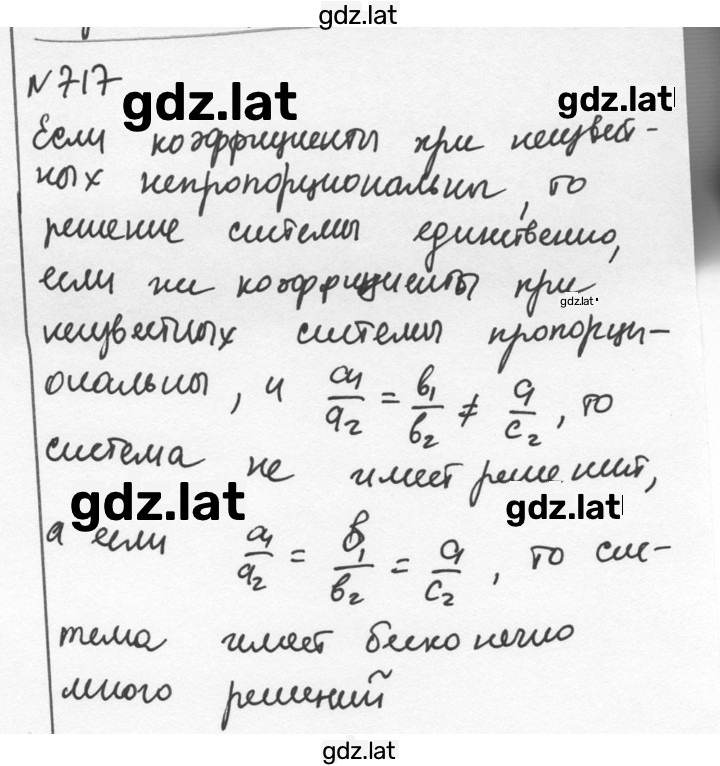 gdz.lat
N 717
gdz.lat
gdz.lat
Если коэффициенты при неизвест-
ных непропорциональны, то
решение системы единственно,
если же коэффициенты при
gdz.lat
неизвестных системы пропорци-
ональны, и a₁/a₂ = b₁/b₂ ≠ c₁/c₂, то
система не имеет решений,
gdz.lat
gdz.lat
а если a₁/a₂ = b₁/b₂ = c₁/c₂, то сис-
тема имеет бесконечно
много решений
gdz.lat